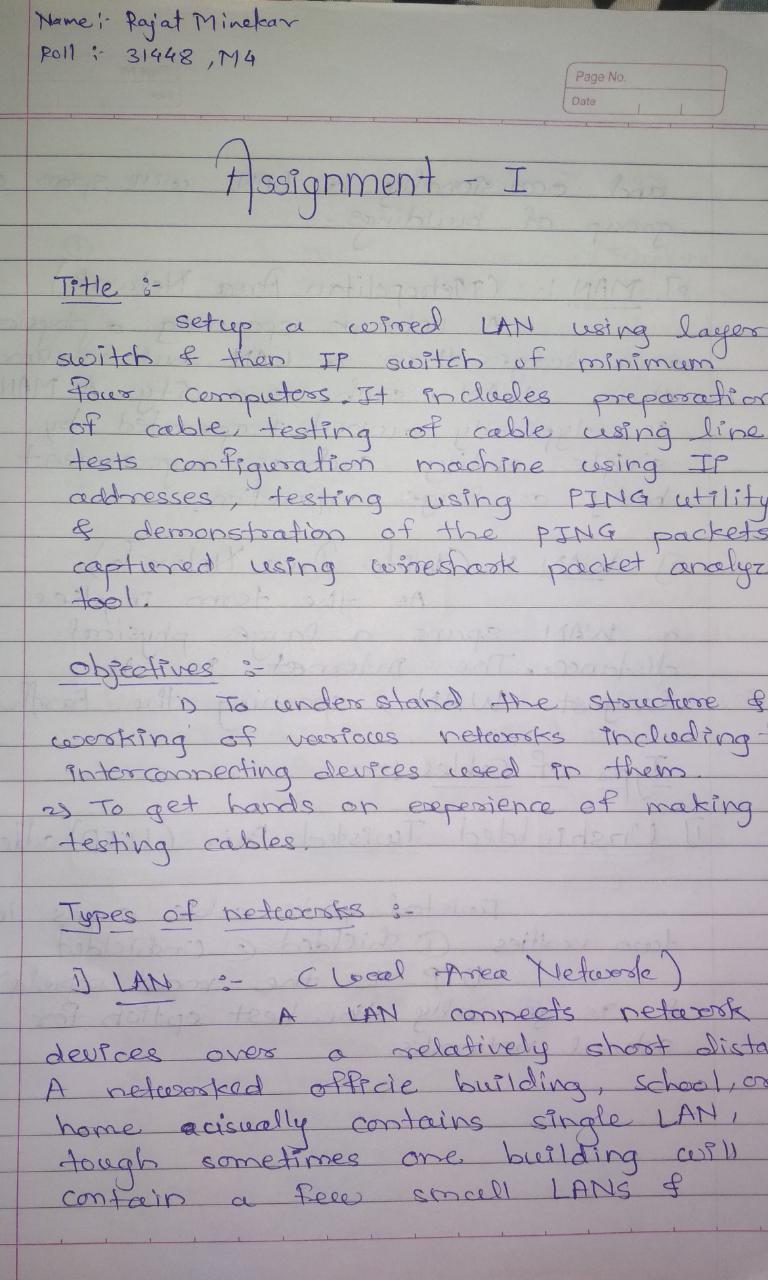 Name:- Rajat Minekar
Roll :- 31448, M4
Page No.
Date
Assignment - I
Title :-
setup a wired LAN using layer
switch & then IP switch of minimum
four computers. It includes preparation
of cable, testing of cable using line
tests configuration machine using IP
addresses, testing using PING utility
& demonstration of the PING packets
captured using wireshark packet analyz
tool.
Objectives :-
1) To understand the structure &
working of various networks including
interconnecting devices used in them.
2) To get hands on experience of making
testing cables.
Types of networks :-
1) LAN :- (Local Area Network)
A LAN connects network
devices over a relatively short dista
A networked officie building, school, or
home acisually contains single LAN,
tough sometimes one building will
contain a few small LANS &